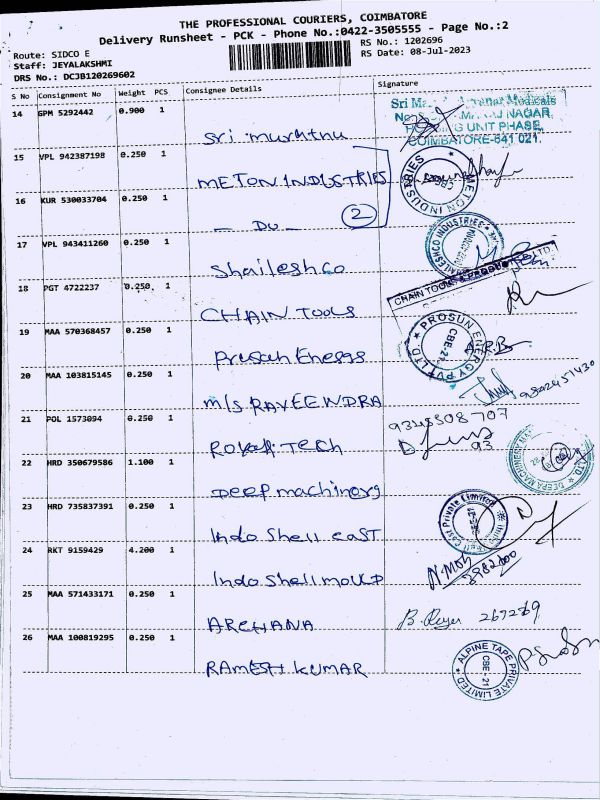 THE PROFESSIONAL COURIERS, COIMBATORE
Delivery Runsheet - PCK - Phone No.:0422-3505555 - Page No.:2
Route: SIDCO E
Staff: JEYALAKSHMI
DRS No.: DC3B120269602
RS No.: 1202696
RS Date: 08-Jul-2023
S No Consignment No Weight PCS Consignee Details Signature
14 GPM 5292442 0.900 1
Sri Murathu
Sri
NAGAR,
HOUSING UNIT PHASE,
COIMBATORE-641 021.
15 VPL 942387198 0.250 1
METON INDUSTRIES
METON INDUSTRIES
16 KUR 530033704 0.250 1
- DU - 2
17 VPL 943411260 0.250 1
Shaileshco
SHAILESHCO INDUSTRIES
18 PGT 4722237 0.250 1
CHAIN TOOLS
CHAIN TOOLS
19 MAA 570368457 0.250 1
Prosan Energs
PROSUN ENERGY PVT LTD
CBE-21
20 MAA 103815145 0.250 1
M/S RAVEENDRA
9802457430
21 POL 1573094 0.250 1
Rovar Tech
9345508707
93
22 HRD 350679586 1.100 1
Deep machinery
DEEPA MACHINERY
23 HRD 735837391 0.250 1
Indo Shell cast
Indo Shell Cast Private Limited
24 RKT 9159429 4.200 1
Indo Shell mould
N.Moh
25 MAA 571433171 0.250 1
ARCHANA
267269
26 MAA 100819295 0.250 1
RAMESH KUMAR
ALPINE TAPE PRIVATE LIMITED
CBE-21